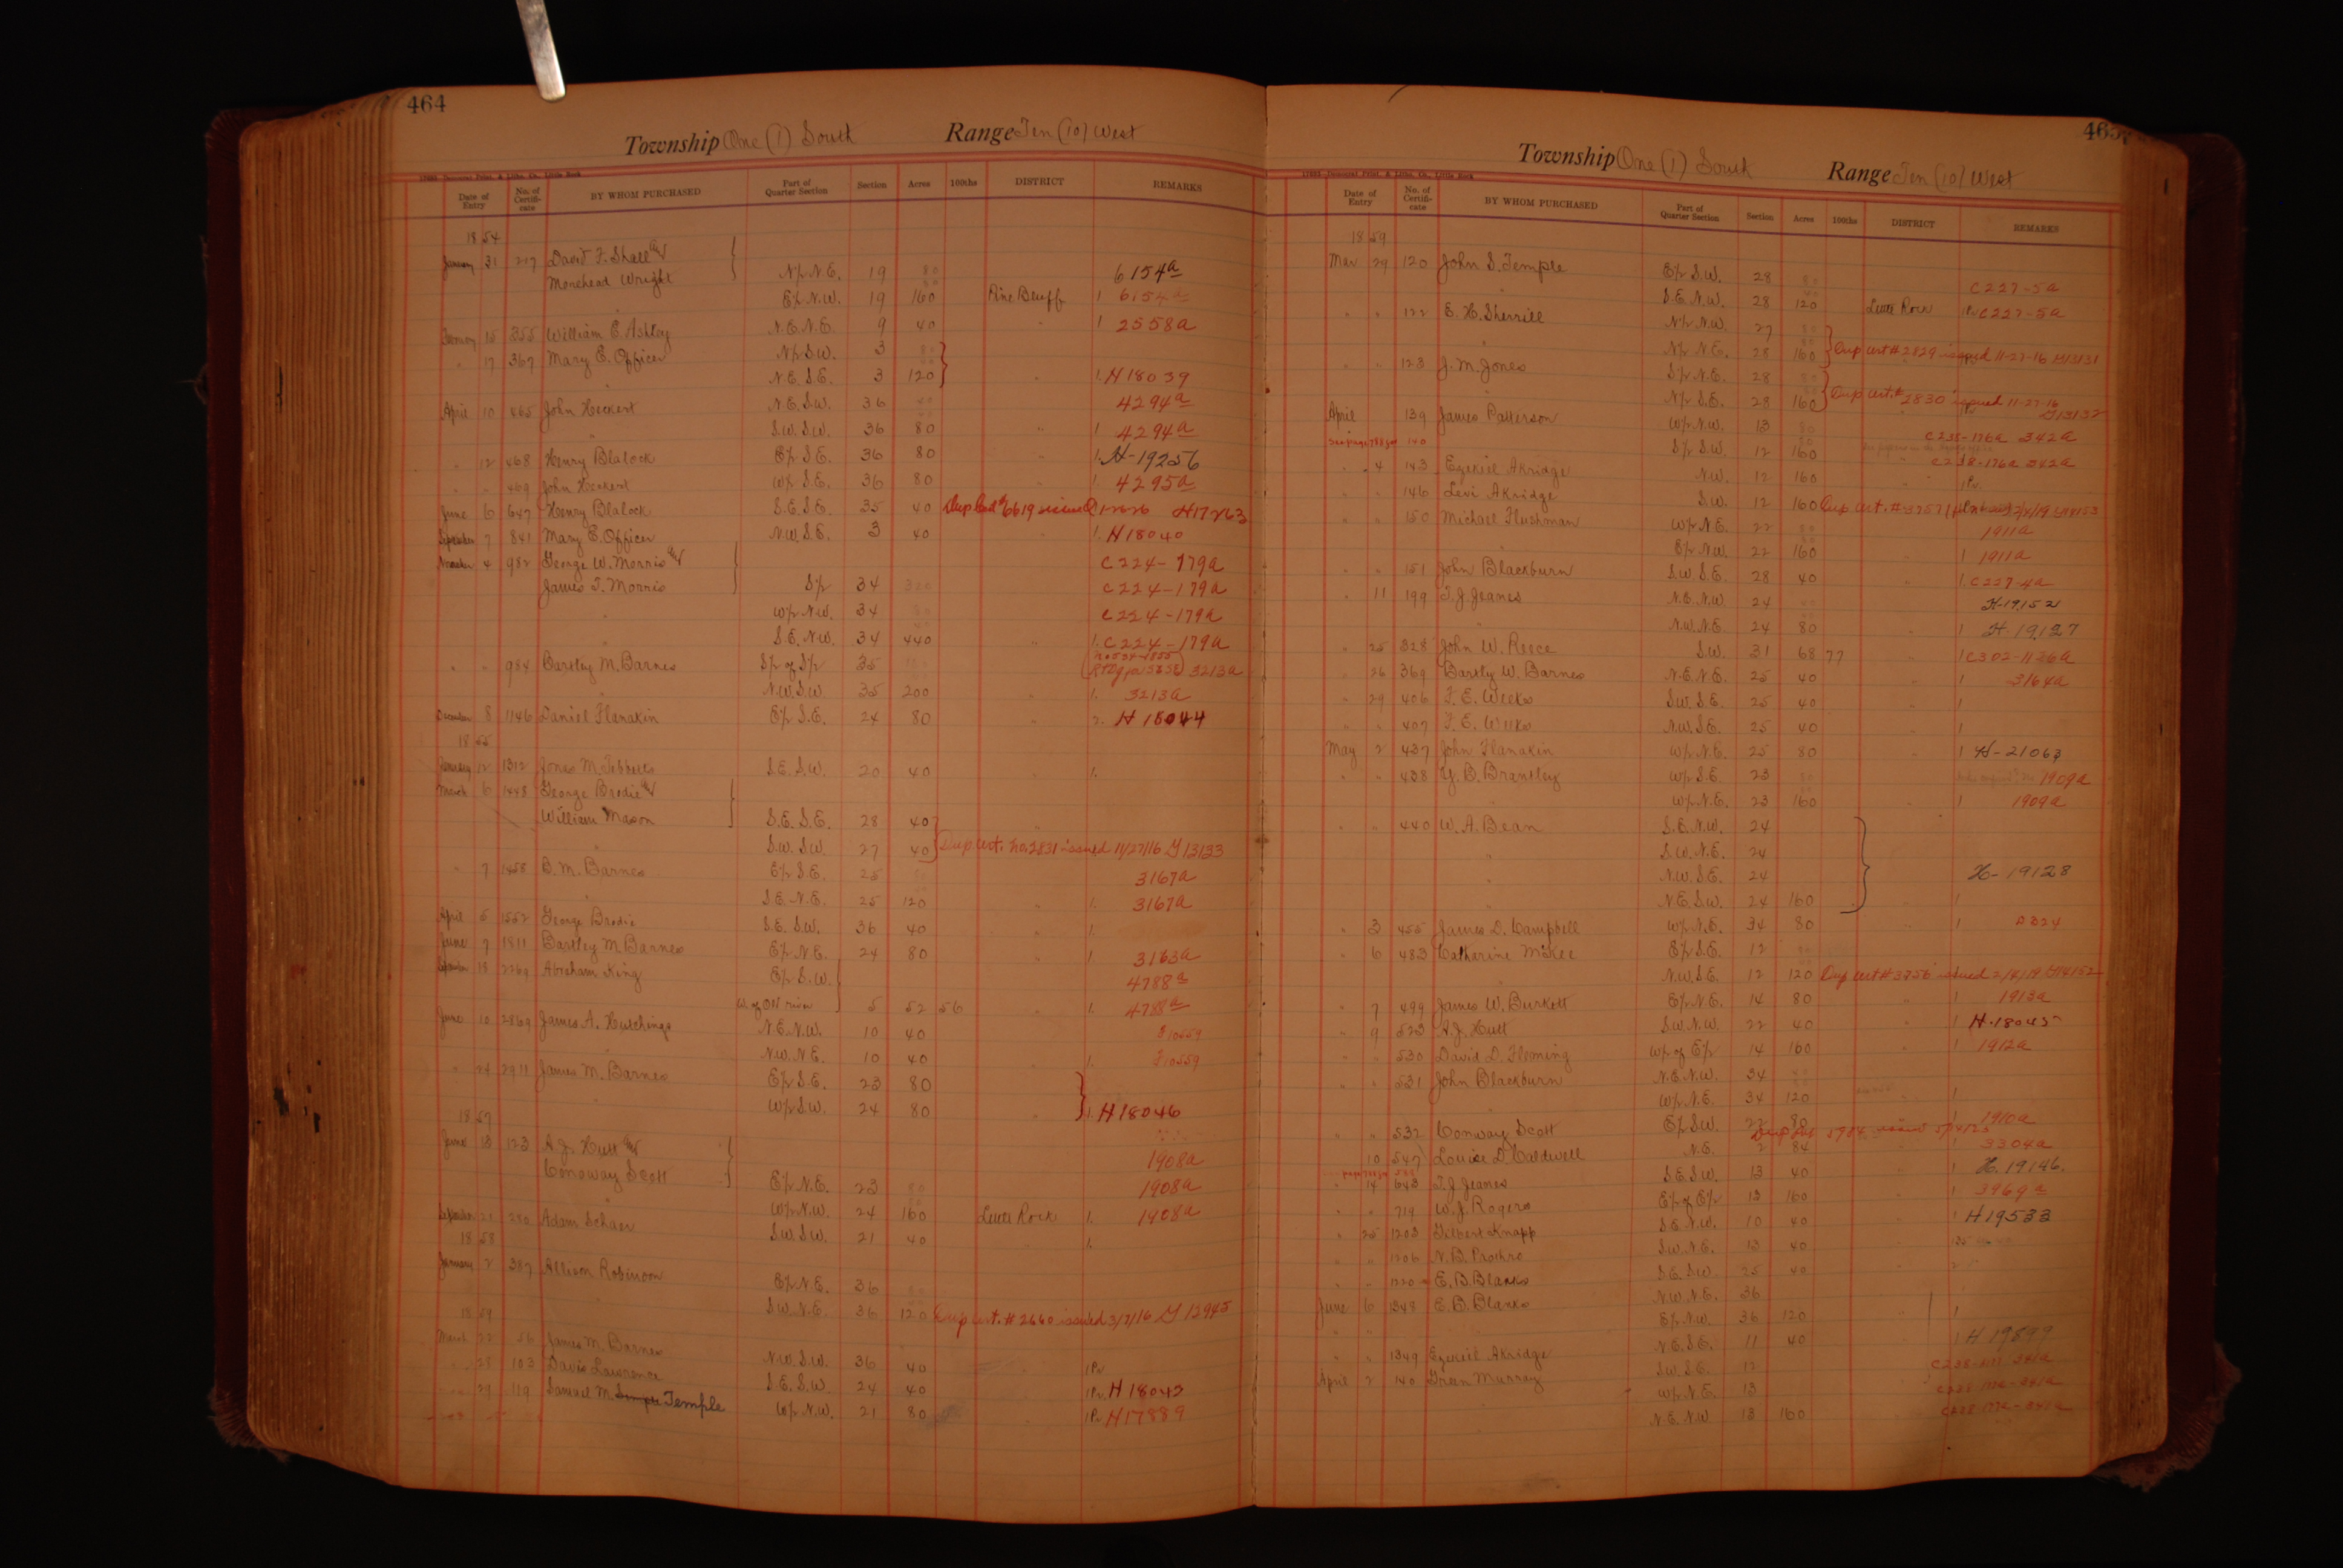 464
Township One (1) South Range Ten (10) West
Date of Entry No. of Certifi-cate BY WHOM PURCHASED Part of Quarter Section Section Acres 100ths DISTRICT REMARKS
1854
January 31 217 David F. Shall and
Morehead Wright N½ N.E. 19 80 6154a
" E½ N.W. 19 160 Pine Bluff 1 6154a
15 355 William E. Ashley N.E. N.E. 9 40 " 1 2558a
" 17 367 Mary E. Officer N½ S.W. 3 80
" N.E. S.E. 3 120 " 1. H18039
April 10 465 John Heckert N.E. S.W. 36 40 4294a
" S.W. S.W. 36 80 " 1 4294a
" 12 468 Henry Blalock E½ S.E. 36 80 " 1. H-19256
" " 469 John Heckert W½ S.E. 36 80 " 1. 4295a
June 6 647 Henry Blalock S.E. S.E. 35 40 Dup Cert # 6619 issued H17263
September 7 841 Mary E. Officer N.W. S.E. 3 40 " 1. H18040
November 4 982 George W. Morris and C224-179a
James T. Morris S½ 34 320 C224-179a
" W½ N.W. 34 80 C224-179a
" S.E. N.W. 34 440 " 1. C224-179a
" " 984 Bartley M. Barnes S½ of S½ 35 160 3213a
" N.W. S.W. 35 200 " 1. 3213a
December 8 1146 Daniel Flanakin E½ S.E. 24 80 " 2. H18044
1855
January 12 1312 Jones M. Tebbetts S.E. S.W. 20 40 " 1.
March 6 1448 George Brodie and
William Mason S.E. S.E. 28 40 "
" S.W. S.W. 27 40 Dup Cert. No. 2831 issued 11/27/16 G13133
" 7 1458 B. M. Barnes E½ S.E. 25 3167a
" S.E. N.E. 25 120 " 1. 3167a
April 5 1552 George Brodie S.E. S.W. 36 40 " 1.
June 7 1811 Bartley M. Barnes E½ N.E. 24 80 " 1. 3163a
September 18 2269 Abraham King E½ S.W. 4788a
W. of Old river 5 52 56 " 1. 4788a
June 10 2869 James A. Hutchings N.E. N.W. 10 40 10559
" N.W. N.E. 10 40 " 1. 10559
" 24 2911 James M. Barnes E½ S.E. 23 80
" W½ S.W. 24 80 " 1. H18046
1857
June 13 123 A. J. Hutt and 1908a
Conoway Scott E½ N.E. 23 80 1908a
" W½ N.W. 24 160 Little Rock 1. 1908a
September 21 280 Adam Schaer S.W. S.W. 21 40 " 1.
1858
January 2 387 Allison Robinson E½ N.E. 36
" S.W. N.E. 36 120 Dup Cert. # 2660 issued 3/7/16 G12945
1859
March 22 56 James M. Barnes N.W. S.W. 36 40 " 1Pr
" 28 103 Davis Lawrence S.E. S.W. 24 40 " 1Pr H18043
" 29 119 Samuel M. Temple W½ N.W. 21 80 " 1Pr H17889
465
Township One (1) South Range Ten (10) West
Date of Entry No. of Certifi-cate BY WHOM PURCHASED Part of Quarter Section Section Acres 100ths DISTRICT REMARKS
1859
Mar 29 120 John S. Temple E½ S.W. 28 80 C227-5a
" S.E. N.W. 28 120 Little Rock 1Pr C227-5a
" " 122 E. H. Sherrill N½ N.W. 27 80
" N½ N.E. 28 160 Dup Cert # 2829 issued 11-27-16 G13131
" " 123 J. M. Jones S½ N.E. 28
" N½ S.E. 28 160 Dup Cert. # 2830 issued 11-27-16 G13132
April 139 James Patterson W½ N.W. 13 80 C238-176a 342a
140 S½ S.W. 12 160 C238-176a 342a
" 4 143 Ezekiel Akridge N.W. 12 160 " 1Pr.
" " 146 Levi Akridge S.W. 12 160 Dup Cert. # 3757 2/4/19
" " 150 Michael Flushman W½ N.E. 22 80 1911a
" E½ N.W. 22 160 " 1 1911a
" " 151 John Blackburn S.W. S.E. 28 40 " 1. C227-4a
" 11 199 T. J. Jeanes N.E. N.W. 24 H-19152
" N.W. N.E. 24 80 " 1 H-19127
" 25 328 John W. Reece S.W. 31 68 77 " 1 C302-1136a
" 26 369 Bartly W. Barnes N.E. N.E. 25 40 " 1 3164a
" 29 406 F. E. Weeks S.W. S.E. 25 40 " 1
" " 407 F. E. Weeks N.W. S.E. 25 40 " 1
May 2 437 John Flanakin W½ N.E. 25 80 " 1 H-21063
" " 438 Y. B. Brantley W½ S.E. 23 80 1909a
" W½ N.E. 23 160 " 1 1909a
" " 440 W. A. Bean S.E. N.W. 24
" S.W. N.E. 24
" N.W. S.E. 24 H-19128
" N.E. S.W. 24 160 " 1
" 3 455 James D. Campbell W½ N.E. 34 80 " 1
" 6 483 Catharine McKee E½ S.E. 12
" N.W. S.E. 12 120 Dup Cert # 3756 issued 2/4/19 G14152
" 7 499 James W. Burkett E½ N.E. 14 80 " 1 1913a
" 9 523 A. J. Hutt S.W. N.W. 22 40 " 1 H-18045
" " 530 David D. Fleming W½ of E½ 14 160 " 1 1912a
" " 531 John Blackburn N.E. N.W. 34
" W½ N.E. 34 120 " 1
" " 532 Conway Scott E½ S.W. 22 80 1 1910a
10 547 Louise D. Caldwell N.E. 2 84 1 3304a
" 14 643 T. J. Jeanes S.E. S.W. 13 40 " 1 H. 19146.
" " 719 W. J. Rogers E½ of E½ 13 160 " 1 3969a
" 25 1203 Gilbert Knapp S.E. N.W. 10 40 " 1 H19533
" " 1206 N. B. Prothro S.W. N.E. 13 40
" " 1220 E. B. Blanks S.E. S.W. 25 40
June 6 1348 E. B. Blanks N.W. N.E. 36
" " E½ N.W. 36 120 " 1
" " 1349 Ezekiel Akridge N.E. S.E. 11 40 " 1 H 19899
April 2 140 Green Murray S.W. S.E. 12
" W½ N.E. 13
" N.E. N.W. 13 160